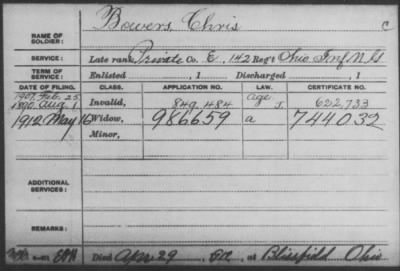 Bowers, Chris C
NAME OF SOLDIER:
SERVICE: Late rank, Private Co. E, 142 Reg't Ohio Inf N G
TERM OF SERVICE: Enlisted , 1 Discharged , 1
DATE OF FILING. CLASS. APPLICATION NO. LAW. CERTIFICATE NO.
1907, Feb. 25 Age
1890, Aug Invalid, 849,484 J. 622,733
1912 May 16 Widow, 986659 a 744032
Minor,
ADDITIONAL SERVICES:
REMARKS:
Died Apr 29, at Blissfield Ohio